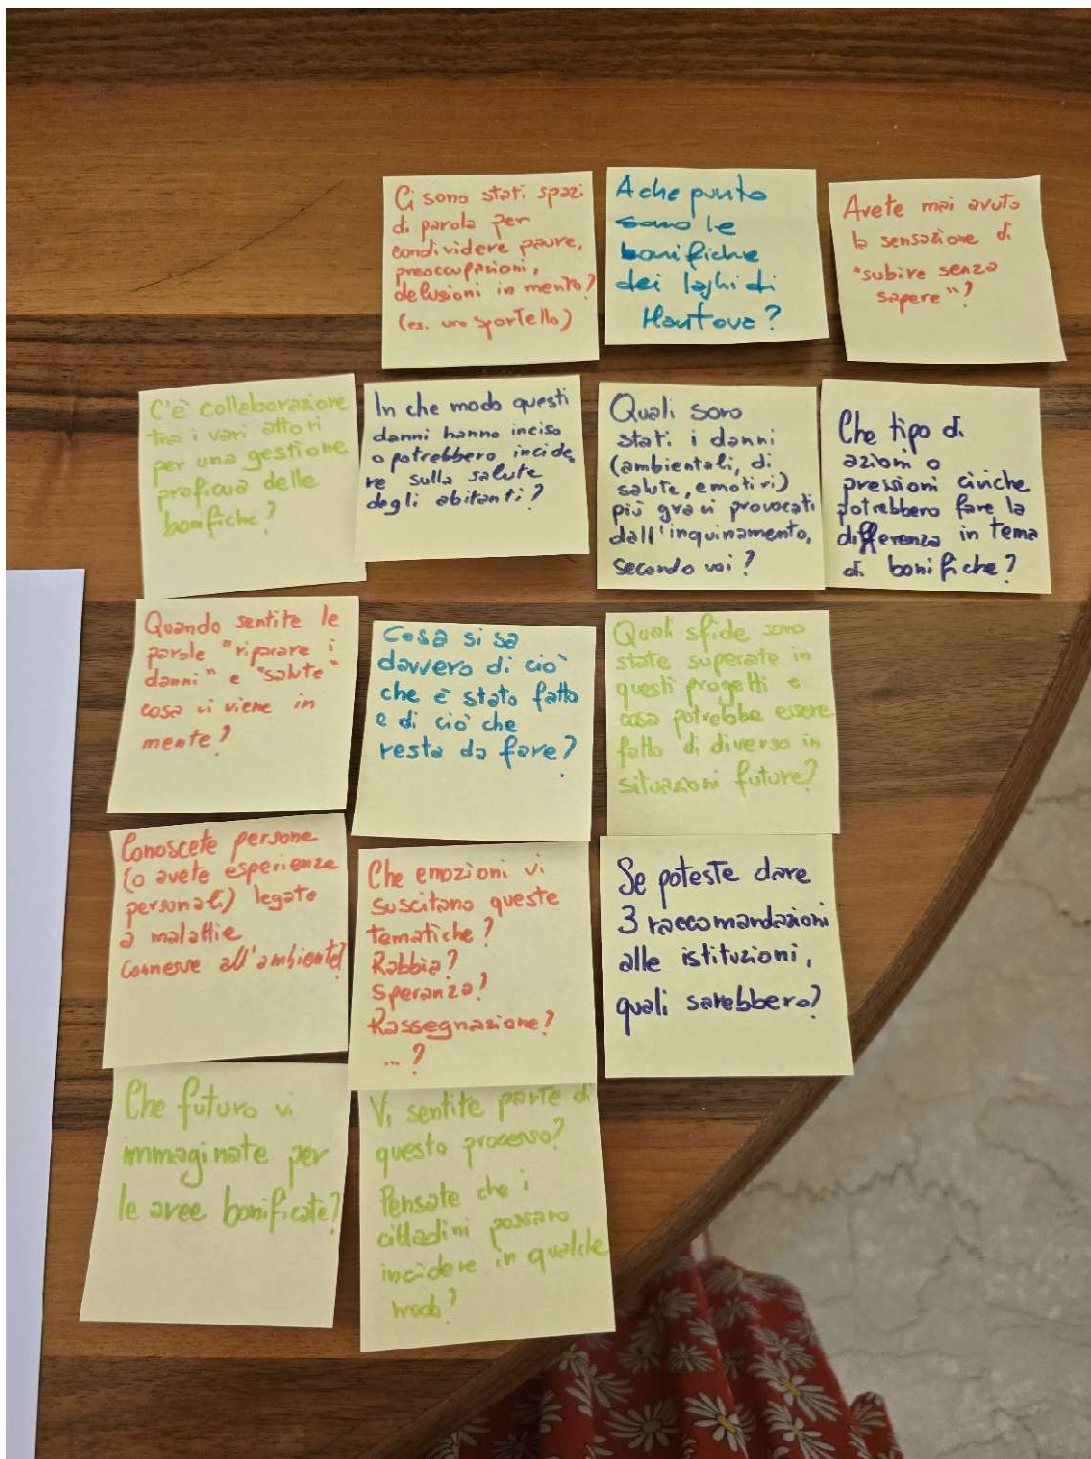 Ci sono stati spazi
di parola per
condividere paure,
preoccupazioni,
delusioni in merito?
(es. uno sportello)
A che punto
sono le
bonifiche
dei laghi di
Mantova?
Avete mai avuto
la sensazione di
"subire senza
sapere"?
C'è collaborazione
tra i vari attori
per una gestione
proficua delle
bonifiche?
In che modo questi
danni hanno inciso
o potrebbero incide
re sulla salute
degli abitanti?
Quali sono
stati i danni
(ambientali, di
salute, emotivi)
più gravi provocati
dall'inquinamento,
secondo voi?
Che tipo di
azioni o
pressioni civiche
potrebbero fare la
differenza in tema
di bonifiche?
Quando sentite le
parole "riparare i
danni" e "salute"
cosa vi viene in
mente?
Cosa si sa
davvero di ciò
che è stato fatto
e di ciò che
resta da fare?
Quali sfide sono
state superate in
questi progetti e
cosa potrebbe essere
fatto di diverso in
situazioni future?
Conoscete persone
(o avete esperienze
personali) legate
a malattie
connesse all'ambiente?
Che emozioni vi
suscitano queste
tematiche?
Rabbia?
Speranza?
Rassegnazione?
...?
Se poteste dare
3 raccomandazioni
alle istituzioni,
quali sarebbero?
Che futuro vi
immaginate per
le aree bonificate?
Vi sentite parte di
questo processo?
Pensate che i
cittadini possano
incidere in qualche
modo?